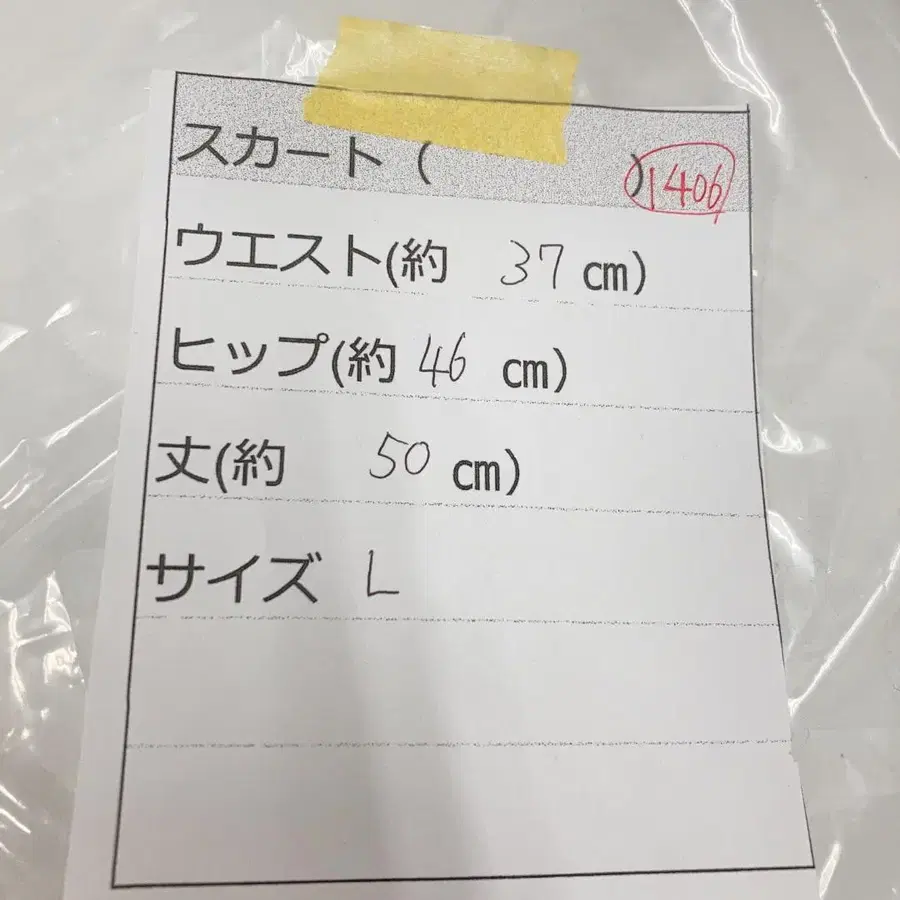 スカート ( ) 1406
ウエスト(約 37 cm)
ヒップ(約 46 cm)
丈(約 50 cm)
サイズ L